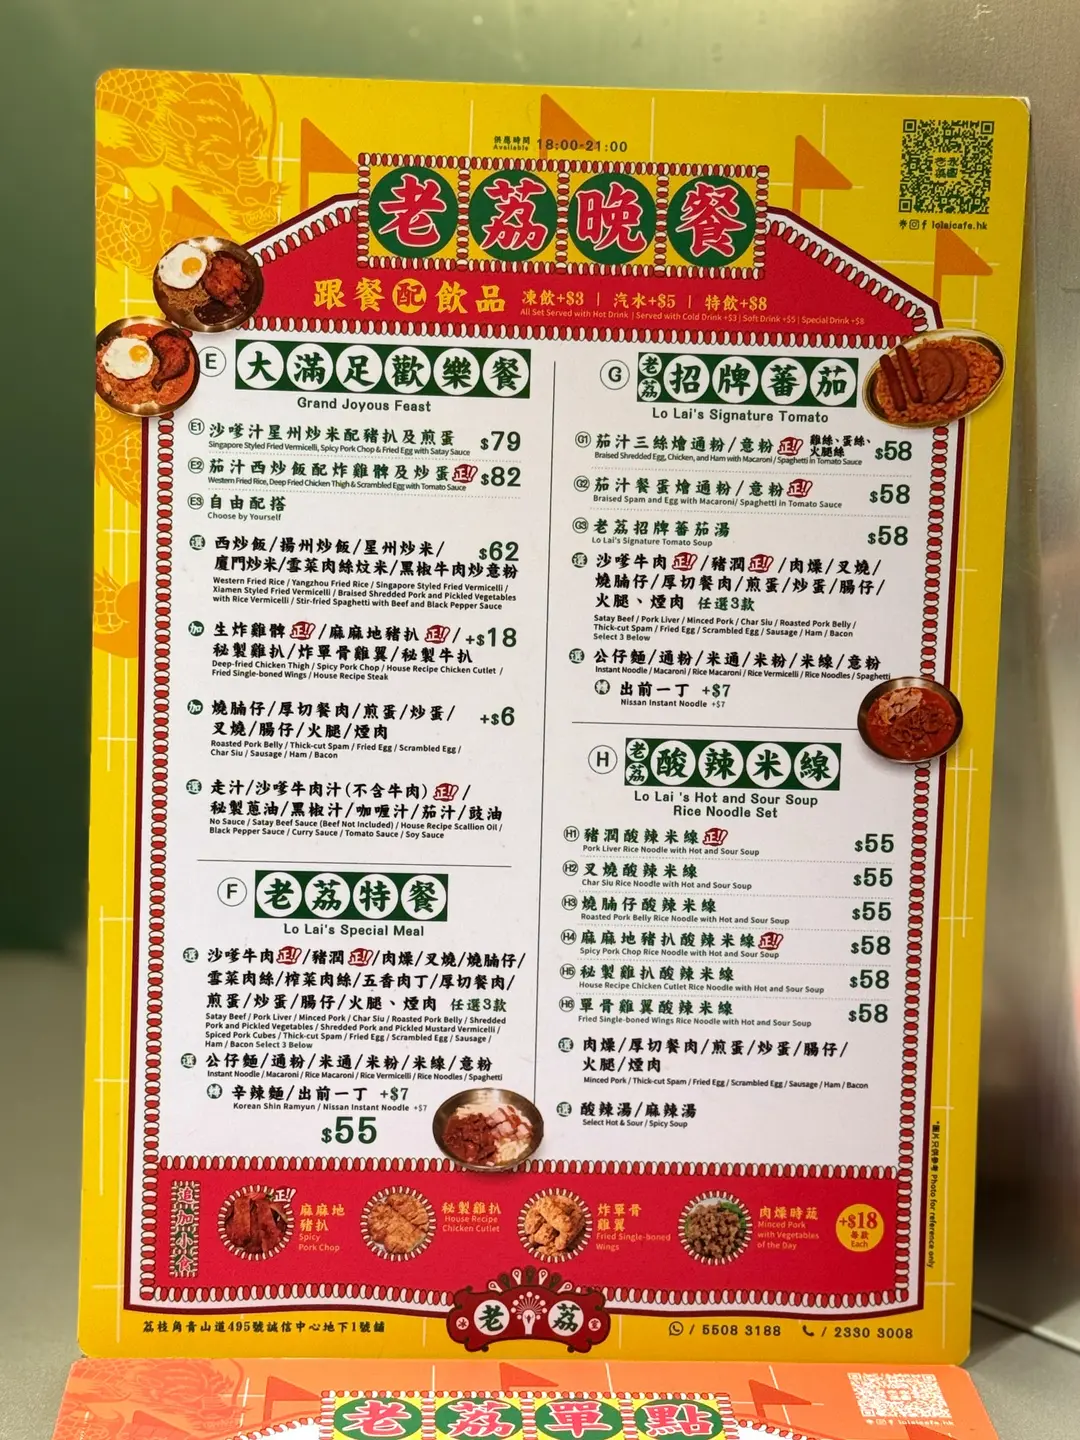 供應時間 18:00-21:00
Available
lolaicafe.hk
老荔晚餐
跟餐配飲品 凍飲+$3 | 汽水+$5 | 特飲+$8
All Set Served with Hot Drink | Served with Cold Drink +$3 | Soft Drink +$5 | Special Drink +$8
E 大滿足歡樂餐
Grand Joyous Feast
E1 沙嗲汁星州炒米配豬扒及煎蛋 $79
Singapore Styled Fried Vermicelli, Spicy Pork Chop & Fried Egg with Satay Sauce
E2 茄汁西炒飯配炸雞髀及炒蛋 正!! $82
Western Fried Rice, Deep Fried Chicken Thigh & Scrambled Egg with Tomato Sauce
E3 自由配搭
Choose by Yourself
選 西炒飯/揚州炒飯/星州炒米/ $62
廈門炒米/雪菜肉絲炆米/黑椒牛肉炒意粉
Western Fried Rice / Yangzhou Fried Rice / Singapore Styled Fried Vermicelli /
Xiamen Styled Fried Vermicelli / Braised Shredded Pork and Pickled Vegetables
with Rice Vermicelli / Stir-fried Spaghetti with Beef and Black Pepper Sauce
加 生炸雞髀 正!! /麻麻地豬扒 正!! / +$18
秘製雞扒/炸單骨雞翼/秘製牛扒
Deep-fried Chicken Thigh / Spicy Pork Chop / House Recipe Chicken Cutlet /
Fried Single-boned Wings / House Recipe Steak
加 燒腩仔/厚切餐肉/煎蛋/炒蛋/ +$6
叉燒/腸仔/火腿/煙肉
Roasted Pork Belly / Thick-cut Spam / Fried Egg / Scrambled Egg /
Char Siu / Sausage / Ham / Bacon
選 走汁/沙嗲牛肉汁(不含牛肉) 正!! /
秘製蔥油/黑椒汁/咖喱汁/茄汁/豉油
No Sauce / Satay Beef Sauce (Beef Not Included) / House Recipe Scallion Oil /
Black Pepper Sauce / Curry Sauce / Tomato Sauce / Soy Sauce
F 老荔特餐
Lo Lai's Special Meal
選 沙嗲牛肉 正!! /豬潤 正!! /肉燥/叉燒/燒腩仔/
雪菜肉絲/榨菜肉絲/五香肉丁/厚切餐肉/
煎蛋/炒蛋/腸仔/火腿、煙肉 任選3款
Satay Beef / Pork Liver / Minced Pork / Char Siu / Roasted Pork Belly / Shredded
Pork and Pickled Vegetables / Shredded Pork and Pickled Mustard Vermicelli /
Spiced Pork Cubes / Thick-cut Spam / Fried Egg / Scrambled Egg / Sausage /
Ham / Bacon Select 3 Below
選 公仔麵/通粉/米通/米粉/米線/意粉
Instant Noodle / Macaroni / Rice Macaroni / Rice Vermicelli / Rice Noodles / Spaghetti
轉 辛辣麵/出前一丁 +$7
Korean Shin Ramyun / Nissan Instant Noodle +$7
$55
G 老荔招牌蕃茄
Lo Lai's Signature Tomato
G1 茄汁三絲燴通粉/意粉 正!! 雞絲、蛋絲、火腿絲 $58
Braised Shredded Egg, Chicken, and Ham with Macaroni / Spaghetti in Tomato Sauce
G2 茄汁餐蛋燴通粉/意粉 正!! $58
Braised Spam and Egg with Macaroni/ Spaghetti in Tomato Sauce
G3 老荔招牌蕃茄湯 $58
Lo Lai's Signature Tomato Soup
選 沙嗲牛肉 正!! /豬潤 正!! /肉燥/叉燒/
燒腩仔/厚切餐肉/煎蛋/炒蛋/腸仔/
火腿、煙肉 任選3款
Satay Beef / Pork Liver / Minced Pork / Char Siu / Roasted Pork Belly /
Thick-cut Spam / Fried Egg / Scrambled Egg / Sausage / Ham / Bacon
Select 3 Below
選 公仔麵/通粉/米通/米粉/米線/意粉
Instant Noodle / Macaroni / Rice Macaroni / Rice Vermicelli / Rice Noodles / Spaghetti
轉 出前一丁 +$7
Nissan Instant Noodle +$7
H 老荔酸辣米線
Lo Lai 's Hot and Sour Soup
Rice Noodle Set
H1 豬潤酸辣米線 正!! $55
Pork Liver Rice Noodle with Hot and Sour Soup
H2 叉燒酸辣米線 $55
Char Siu Rice Noodle with Hot and Sour Soup
H3 燒腩仔酸辣米線 $55
Roasted Pork Belly Rice Noodle with Hot and Sour Soup
H4 麻麻地豬扒酸辣米線 正!! $58
Spicy Pork Chop Rice Noodle with Hot and Sour Soup
H5 秘製雞扒酸辣米線 $58
House Recipe Chicken Cutlet Rice Noodle with Hot and Sour Soup
H6 單骨雞翼酸辣米線 $58
Fried Single-boned Wings Rice Noodle with Hot and Sour Soup
選 肉燥/厚切餐肉/煎蛋/炒蛋/腸仔/
火腿/煙肉
Minced Pork / Thick-cut Spam / Fried Egg / Scrambled Egg / Sausage / Ham / Bacon
選 酸辣湯/麻辣湯
Select Hot & Sour / Spicy Soup
*圖片只供參考 Photo for reference only
追加小食
正!!
麻麻地
豬扒
Spicy
Pork Chop
秘製雞扒
House Recipe
Chicken Cutlet
炸單骨
雞翼
Fried Single-boned
Wings
肉燥時蔬
Minced Pork
with Vegetables
of the Day
+$18
每款
Each
荔枝角青山道495號誠信中心地下1號舖
冰 老荔 室
/ 5508 3188 / 2330 3008
老荔單點
lolaicafe.hk